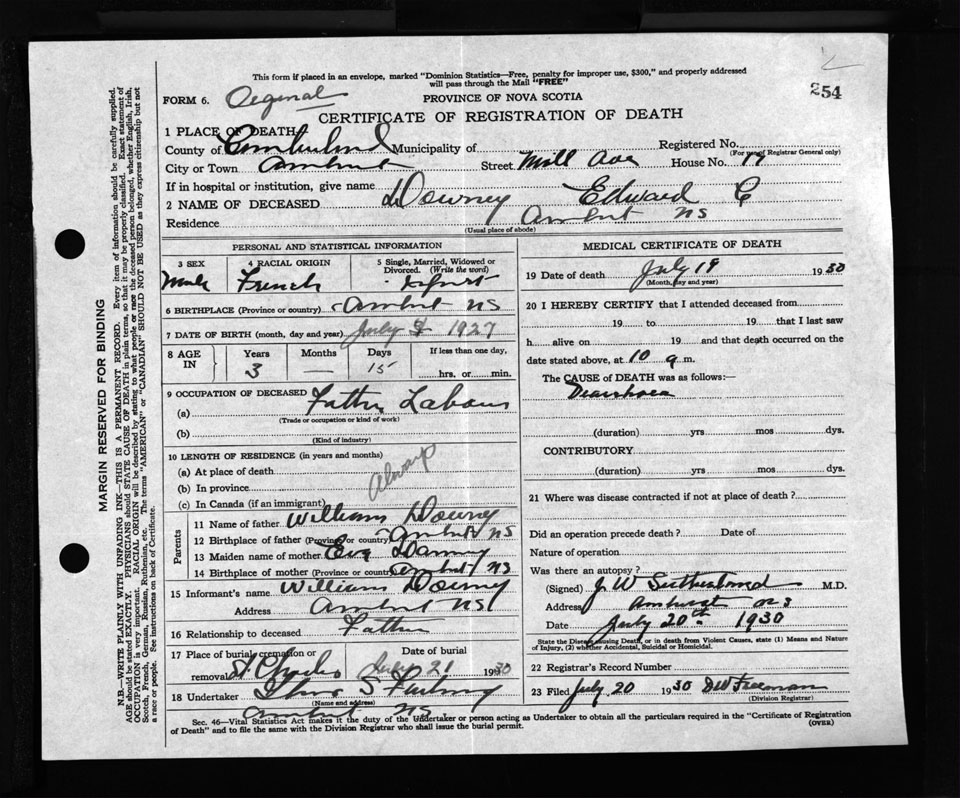 This form if placed in an envelope, marked "Dominion Statistics—Free, penalty for improper use, $300," and properly addressed
will pass through the Mail "FREE"
254
FORM 6. Original PROVINCE OF NOVA SCOTIA
CERTIFICATE OF REGISTRATION OF DEATH
1 PLACE OF DEATH
County of Cumberland Municipality of Registered No.
(For use of Registrar General only)
City or Town Amherst Street Mill Ave House No. 17
If in hospital or institution, give name
2 NAME OF DECEASED Downey Edward C
Residence Amherst NS
(Usual place of abode)
PERSONAL AND STATISTICAL INFORMATION
3 SEX 4 RACIAL ORIGIN 5 Single, Married, Widowed or Divorced. (Write the word)
Male French Infant
6 BIRTHPLACE (Province or country) Amherst NS
7 DATE OF BIRTH (month, day and year) July 1927
8 AGE IN Years Months Days If less than one day,
3 — 15 hrs. or min.
9 OCCUPATION OF DECEASED Father Labour
(a)
(Trade or occupation or kind of work)
(b)
(Kind of industry)
10 LENGTH OF RESIDENCE (in years and months)
(a) At place of death
(b) In province Always
(c) In Canada (if an immigrant)
Parents
11 Name of father William Downey
12 Birthplace of father (Province or country) Amherst NS
13 Maiden name of mother Eva
14 Birthplace of mother (Province or country) Amherst NS
15 Informant's name William Downey
Address Amherst NS
16 Relationship to deceased Father
17 Place of burial, cremation or removal St Charles Date of burial July 21 1930
18 Undertaker
(Name and address)
Amherst NS.
MEDICAL CERTIFICATE OF DEATH
19 Date of death July 19 1930
(Month, day and year)
20 I HEREBY CERTIFY that I attended deceased from
19 to 19 that I last saw
h alive on 19 and that death occurred on the
date stated above, at 10 a m.
The CAUSE of DEATH was as follows:—
Diarrhoea
(duration) yrs mos dys.
CONTRIBUTORY
(duration) yrs mos dys.
21 Where was disease contracted if not at place of death?
Did an operation precede death? Date of
Nature of operation
Was there an autopsy?
(Signed) J W Sutherland M.D.
Address Amherst NS
Date July 20th 1930
State the Disease Causing Death, or in death from Violent Causes, state (1) Means and Nature
of Injury, (2) whether Accidental, Suicidal or Homicidal.
22 Registrar's Record Number
23 Filed July 20 1930 DW Freeman
(Division Registrar)
Sec. 46—Vital Statistics Act makes it the duty of the Undertaker or person acting as Undertaker to obtain all the particulars required in the "Certificate of Registration
of Death" and to file the same with the Division Registrar who shall issue the burial permit.
(OVER)
MARGIN RESERVED FOR BINDING
N.B.—WRITE PLAINLY WITH UNFADING INK—THIS IS A PERMANENT RECORD. Every item of information should be carefully supplied.
AGE should be stated EXACTLY. PHYSICIANS should STATE CAUSE OF DEATH in plain terms, so that it may be properly classified. Exact statement of
OCCUPATION is very important. RACIAL ORIGIN will be described by stating to what people or race the deceased person belonged, whether English, Irish,
Scotch, French, German, Russian, Ruthenian, etc. The terms "AMERICAN" or "CANADIAN" SHOULD NOT BE USED as they express citizenship but not
a race or people. See instructions on back of Certificate.